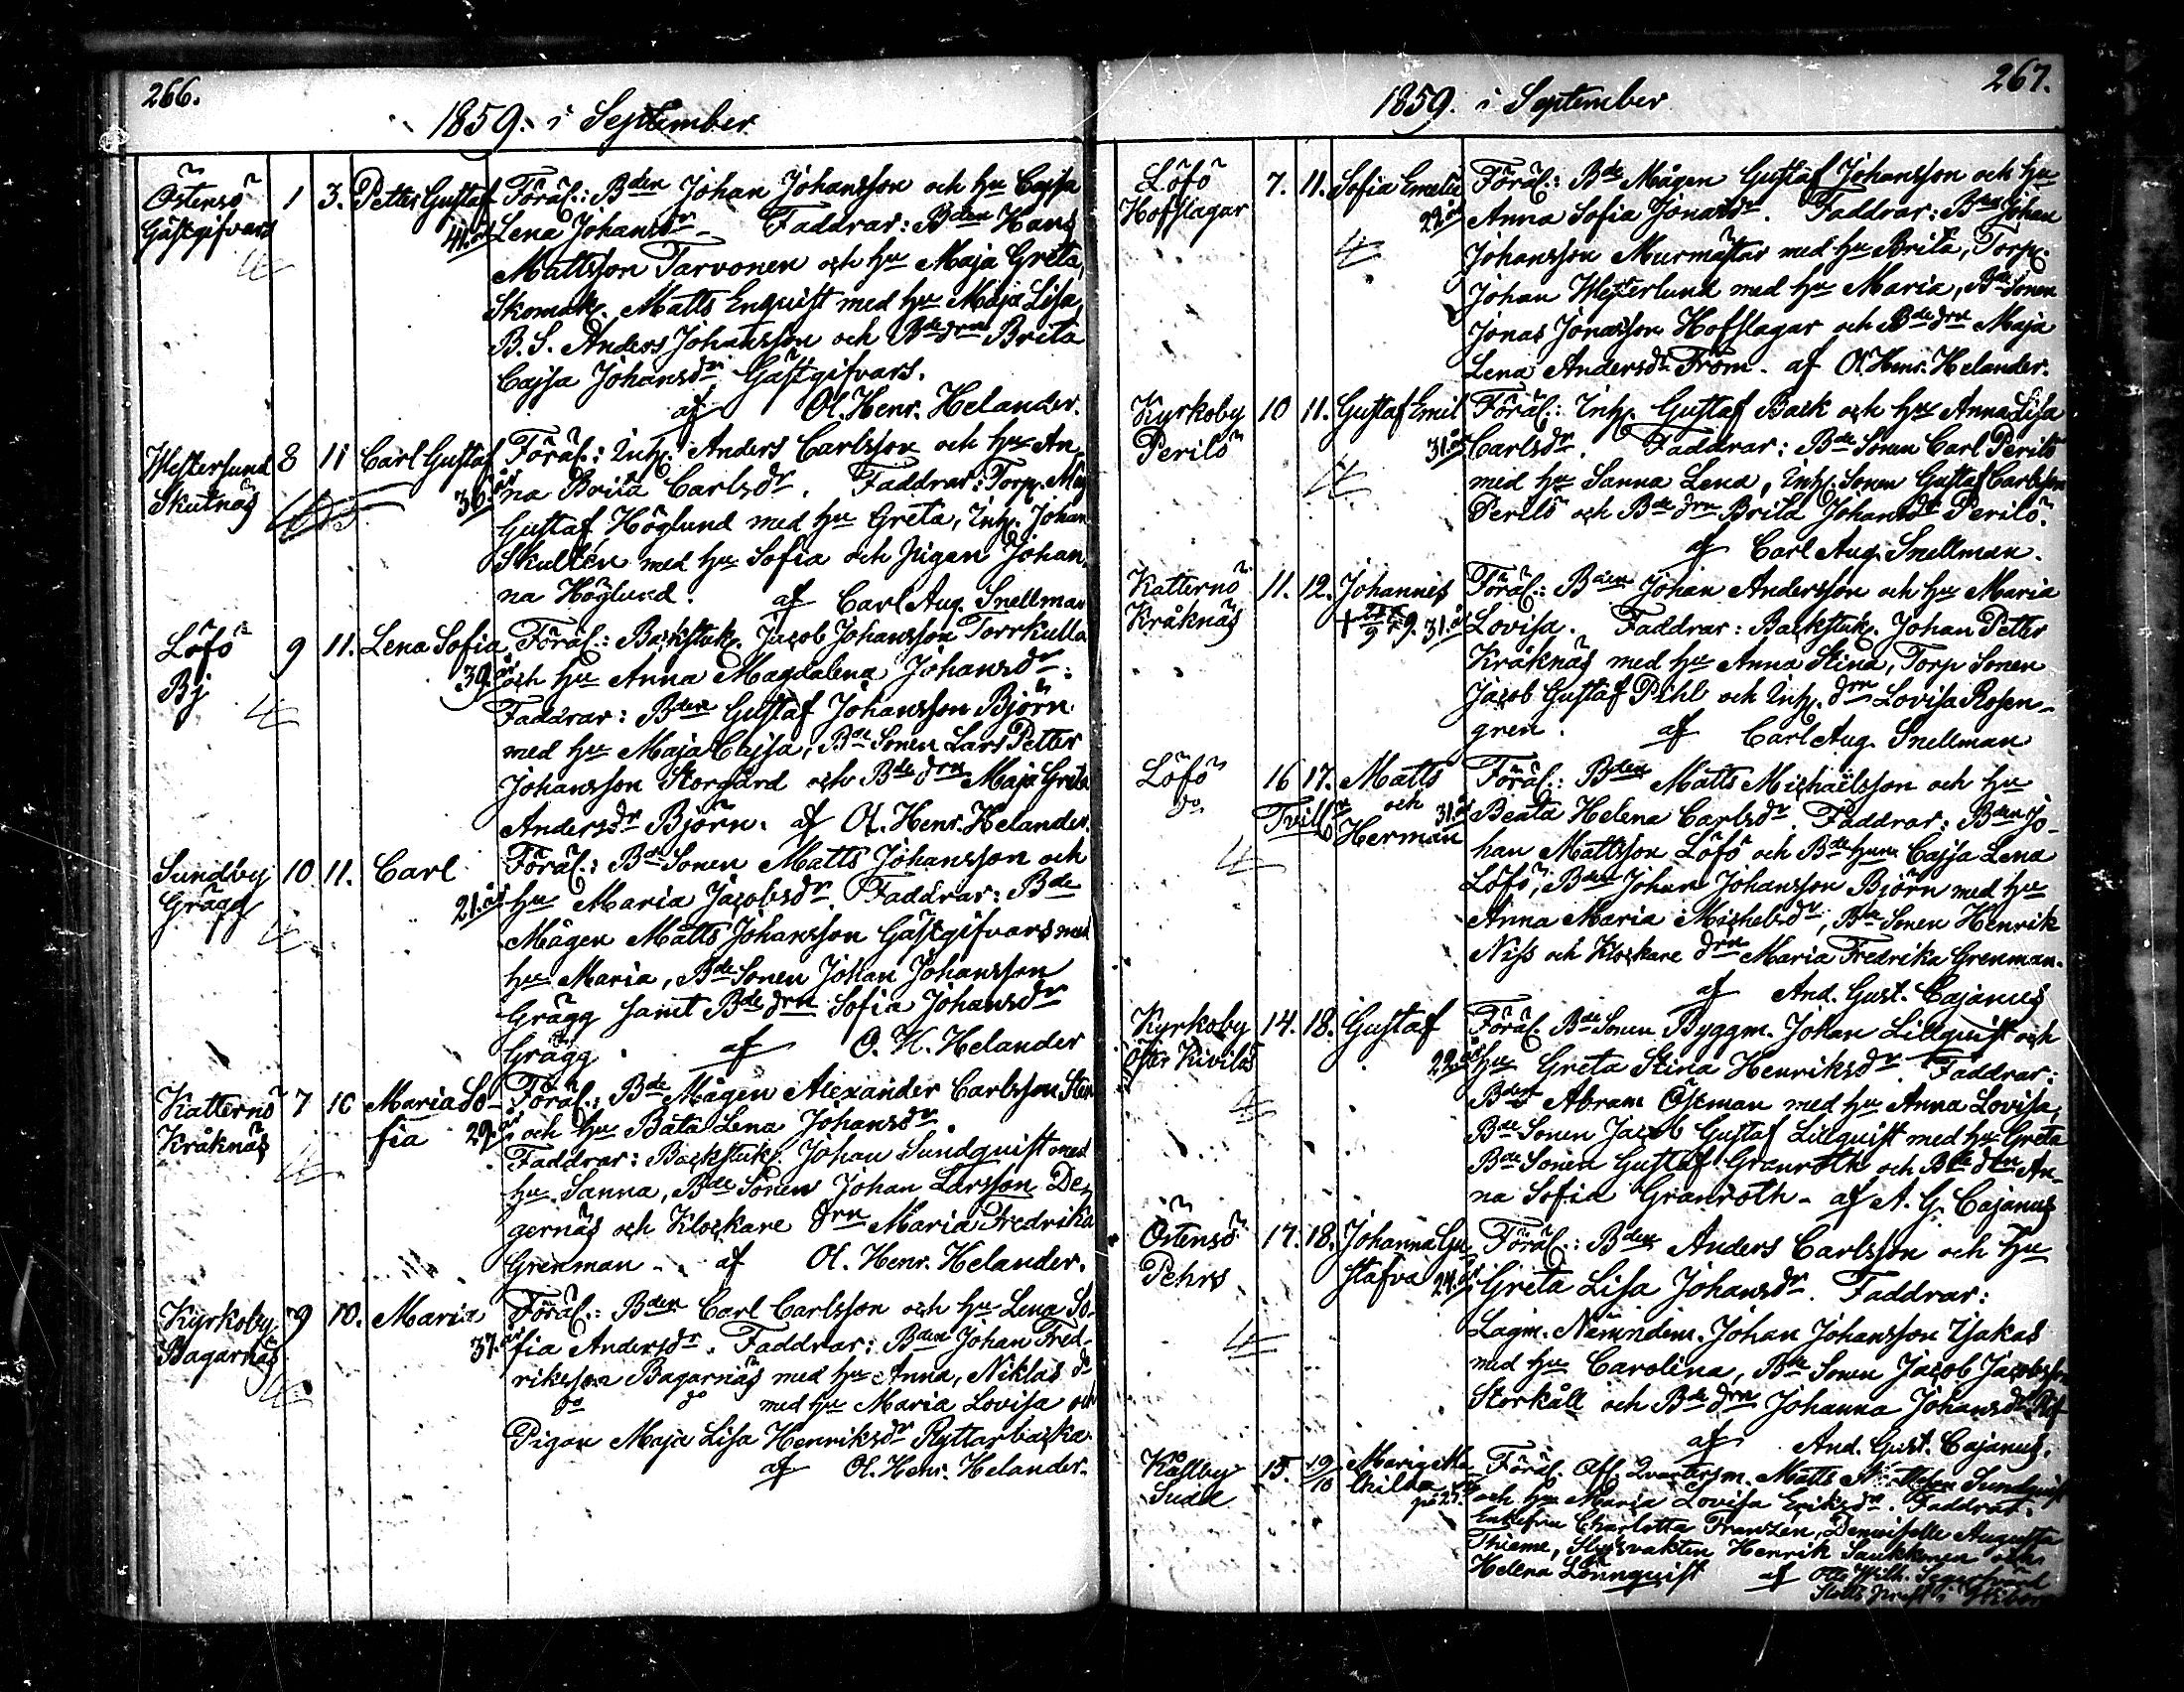 266.
1859. i September
Östensö 1 3. Petter Gustaf Föräl.: Bden Johan Johansson och hu Cajsa
Gästgifvars 41. år Lena Johansdr - Faddrar: Bden Hans
Mattsson Tarvonen och hu Maja Greta,
Skomak. Matts Enquist med hu Maja Lisa,
B. S. Anders Johansson och Bde drn Brita
Cajsa Johansdr Gästgifvars.
af Ol. Henr. Helander.
Westersund 8 11 Carl Gustaf Föräl.: Inh. Anders Carlsson och hu An-
Skutnäs 30. år na Brita Carlsdr. Faddrar: Torp.
Gustaf Höglund med hu Greta, Inh. Johan
Skultén med hu Sofia och pigan Johan
na Höglund. af Carl Aug. Snellman
Löfö 9 11. Lena Sofia Föräl.: Backstuk. Jacob Johansson Torrkulla
By 39. år och hu Anna Magdalena Johansdr.
Faddrar: Bden Gustaf Johansson Björn
med hu Maja Cajsa, Bde Sonen Lars Petter
Johansson Storgård och Bde drn Maja Greta
Andersdr Björn. af Ol. Henr. Helander.
Sundby 10. 11. Carl Föräl.: Bde Sonen Matts Johansson och
Grägg 21. år hu Maria Jacobsdr. Faddrar: Bde
Mågen Matts Johansson Gästgifvars med
hu Maria, Bde Sonen Johan Johansson
Grägg samt Bde drn Sofia Johansdr
Grägg. af O. H. Helander
Katternö 7 10 Maria So- Föräl.: Bde Mågen Alexander Carlsson Sten
Kråknäs fia 29. år och hu Bata Lena Johansdr.
Faddrar: Backstuk. Johan Sundquist med
hu Sanna, Bde Sonen Johan Larsson De-
gernäs och Klockare drn Maria Fredrika
Grenman - af Ol. Henr. Helander.
Kyrkoby 9 10. Maria Föräl.: Bden Carl Carlsson och hu Lena So-
Bagarnäs 37. år fia Andersdr. Faddrar: Bden Johan Fred-
riksson Bagarnäs med hu Anna, Niklas do
do do med hu Maria Lovisa och
Pigan Maja Lisa Henriksdr Ryttarbacka.
af Ol. Henr. Helander.
267.
1859. i September
Löfö 7. 11. Sofia Emelie Föräl.: Bde Mågen Gustaf Johansson och hu
Hofslagar 22. år Anna Sofia Jonasdr. Faddrar: Bden Johan
Johansson Murmästar med hu Brita, Torp.
Johan Westerlund med hu Maria, Bde Sonen
Jonas Jonasson Hofslagar och Bde drn Maja
Lena Andersdr From. af Ol. Henr. Helander.
Kyrkoby 10 11. Gustaf Emil Föräl.: Inh. Gustaf Back och hu Anna Lisa
Perilö 31. år Carlsdr. Faddrar: Bde Sonen Carl Perilö
med hu Sanna Lena, Inh. Sonen Gustaf Carlsson
Perilö och Bde drn Brita Johansdr Perilö.
af Carl Aug. Snellman.
Katternö 11. 12. Johannes Föräl.: Bden Johan Andersson och hu Maria
Kråknäs 31. år Lovisa. Faddrar: Backstuk. Johan Petter
Kråknäs med hu Anna Stina, Torp Sonen
Jacob Gustaf Pihl och Inh. drn Lovisa Rosen-
gren. af Carl Aug. Snellman
Löfö 16 17. Matts Föräl.: Bden Matts Michaëlsson och hu
do Tvill. och Herman 31. år Beata Helena Carlsdr. Faddrar: Bden Jo-
han Mattsson Löfö och Bde hun Cajsa Lena
Löfö, Bden Johan Johansson Björn med hu
Anna Maria Michelsdr, Bde Sonen Henrik
Niss och Klockare drn Maria Fredrika Grenman.
af And. Gust. Cajanus
Kyrkoby 14. 18. Gustaf Föräl. Bde Sonen Byggm. Johan Lillquist och
Öster Kivilös 22. år hu Greta Stina Henriksdr. Faddrar:
Bden Abram Östman med hu Anna Lovisa,
Bde Sonen Jacob Gustaf Lillquist med hu Greta
Bde Sonen Gustaf Granroth och Bde drn An-
na Sofia Granroth - af A. G. Cajanus
Östensö 17. 18. Johanna Gu- Föräl.: Bden Anders Carlsson och hu
Pehrs stafva 24. år Greta Lisa Johansdr. Faddrar:
Lagm. Nämndem. Johan Johansson Isakas
med hu Carolina, Bde Sonen Jacob Jacobsson
Storkåll och Bde drn Johanna Johansdr
af And. Gust. Cajanus.
Kållby 15. 19/10 Maria Ma- Föräl. Qvartersm. Matts Sundquist
Sudd thilda och hu Maria Lovisa Eriksdr. Faddrar.
Enkefru Charlotta Franzén, Demoiselle Augusta
Thieme, Slussvakten Henrik Saukkonen och
Helena Lönnquist af Otto Wilh.